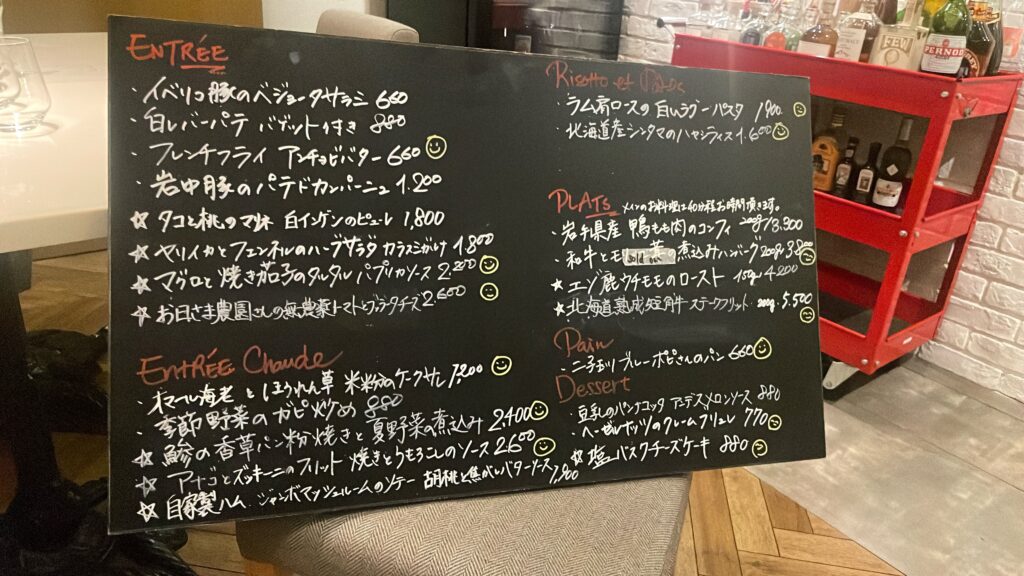 ENTRÉE
・イベリコ豚のベジョータサラミ 660
・白レバーパテ バゲット付き 880
・フレンチフライ アンチョビバター 660
・岩中豚のパテドカンパーニュ 1.200
☆タコと桃のマリネ 白インゲンのピューレ 1,800
☆ヤリイカとフェンネルのハーブサラダ カラスミがけ 1.800
★マグロと焼き茄子のタルタル パプリカソース 2.200
★お日さま農園さんの無農薬トマトとブラータチーズ 2600
ENTRÉE Chaude
・オマール海老とほうれん草 米粉のケークサレ 1,200
・季節野菜のガピ炒め 880
☆鯵の香草パン粉焼きと夏野菜の煮込み 2400
☆アナゴとズッキーニのフリット 焼きとうもろこしのソース 2600
☆自家製ハム ジャンボマッシュルームのソテー 胡桃と焦がしバターソース 1,900
Risotto et Pates
・ラム肩ロースの白いラグーパスタ 1,900
・北海道産シンタマのハヤシライス 1.600
PLATS メインのお料理は40分程お時間頂きます。
・岩手県産 鴨もも肉のコンフィ 200g/3.300
・和牛とモ 煮込みハンバーグ 200g 3.800
★エゾ鹿ウチモモのロースト 150g 4.200
★北海道熟成短角牛 ステークフリット 200g 5.500
Pain
・二子玉川ブレーポピさんのパン 660
Dessert
・豆乳のパンナコッタ アンデスメロンソース 880
・ヘーゼルナッツのクレームブリュレ 770
☆塩バスクチーズケーキ 880
PERNOD